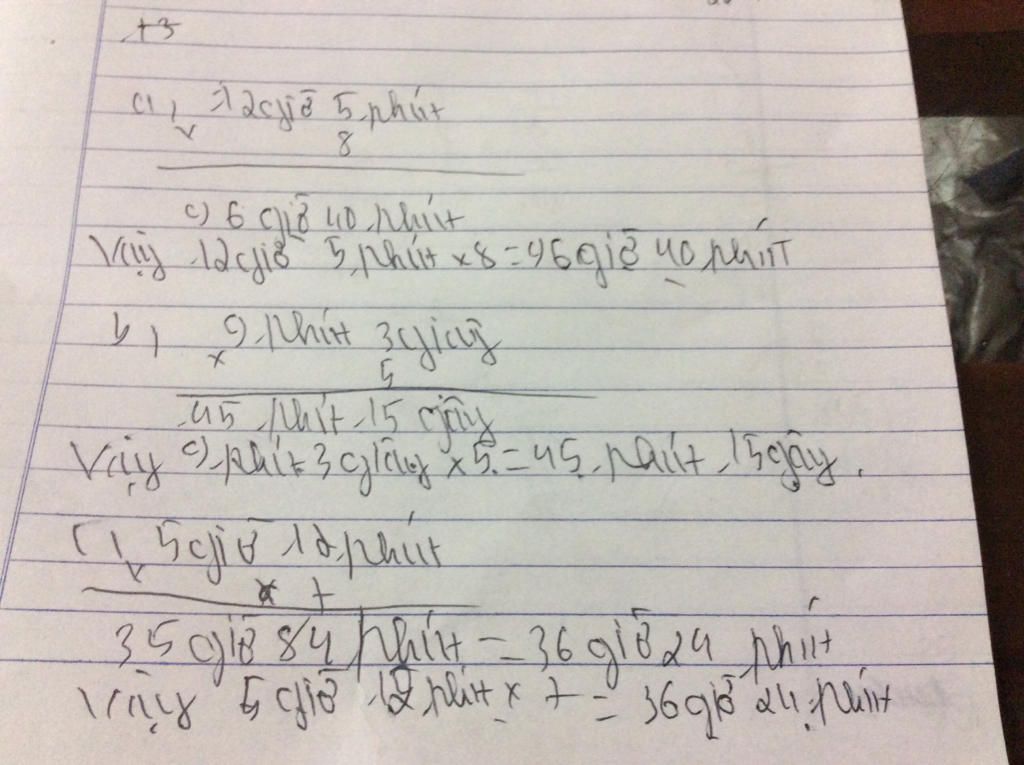 a, 12 giờ 5 phút
×
8
96 giờ 40 phút
Vậy 12 giờ 5 phút × 8 = 96 giờ 40 phút
b, 9 phút 3 giây
×
5
45 phút 15 giây
Vậy 9 phút 3 giây × 5 = 45 phút 15 giây.
c, 5 giờ 12 phút
× 7
35 giờ 84 phút = 36 giờ 24 phút
Vậy 5 giờ 12 phút × 7 = 36 giờ 24 phút